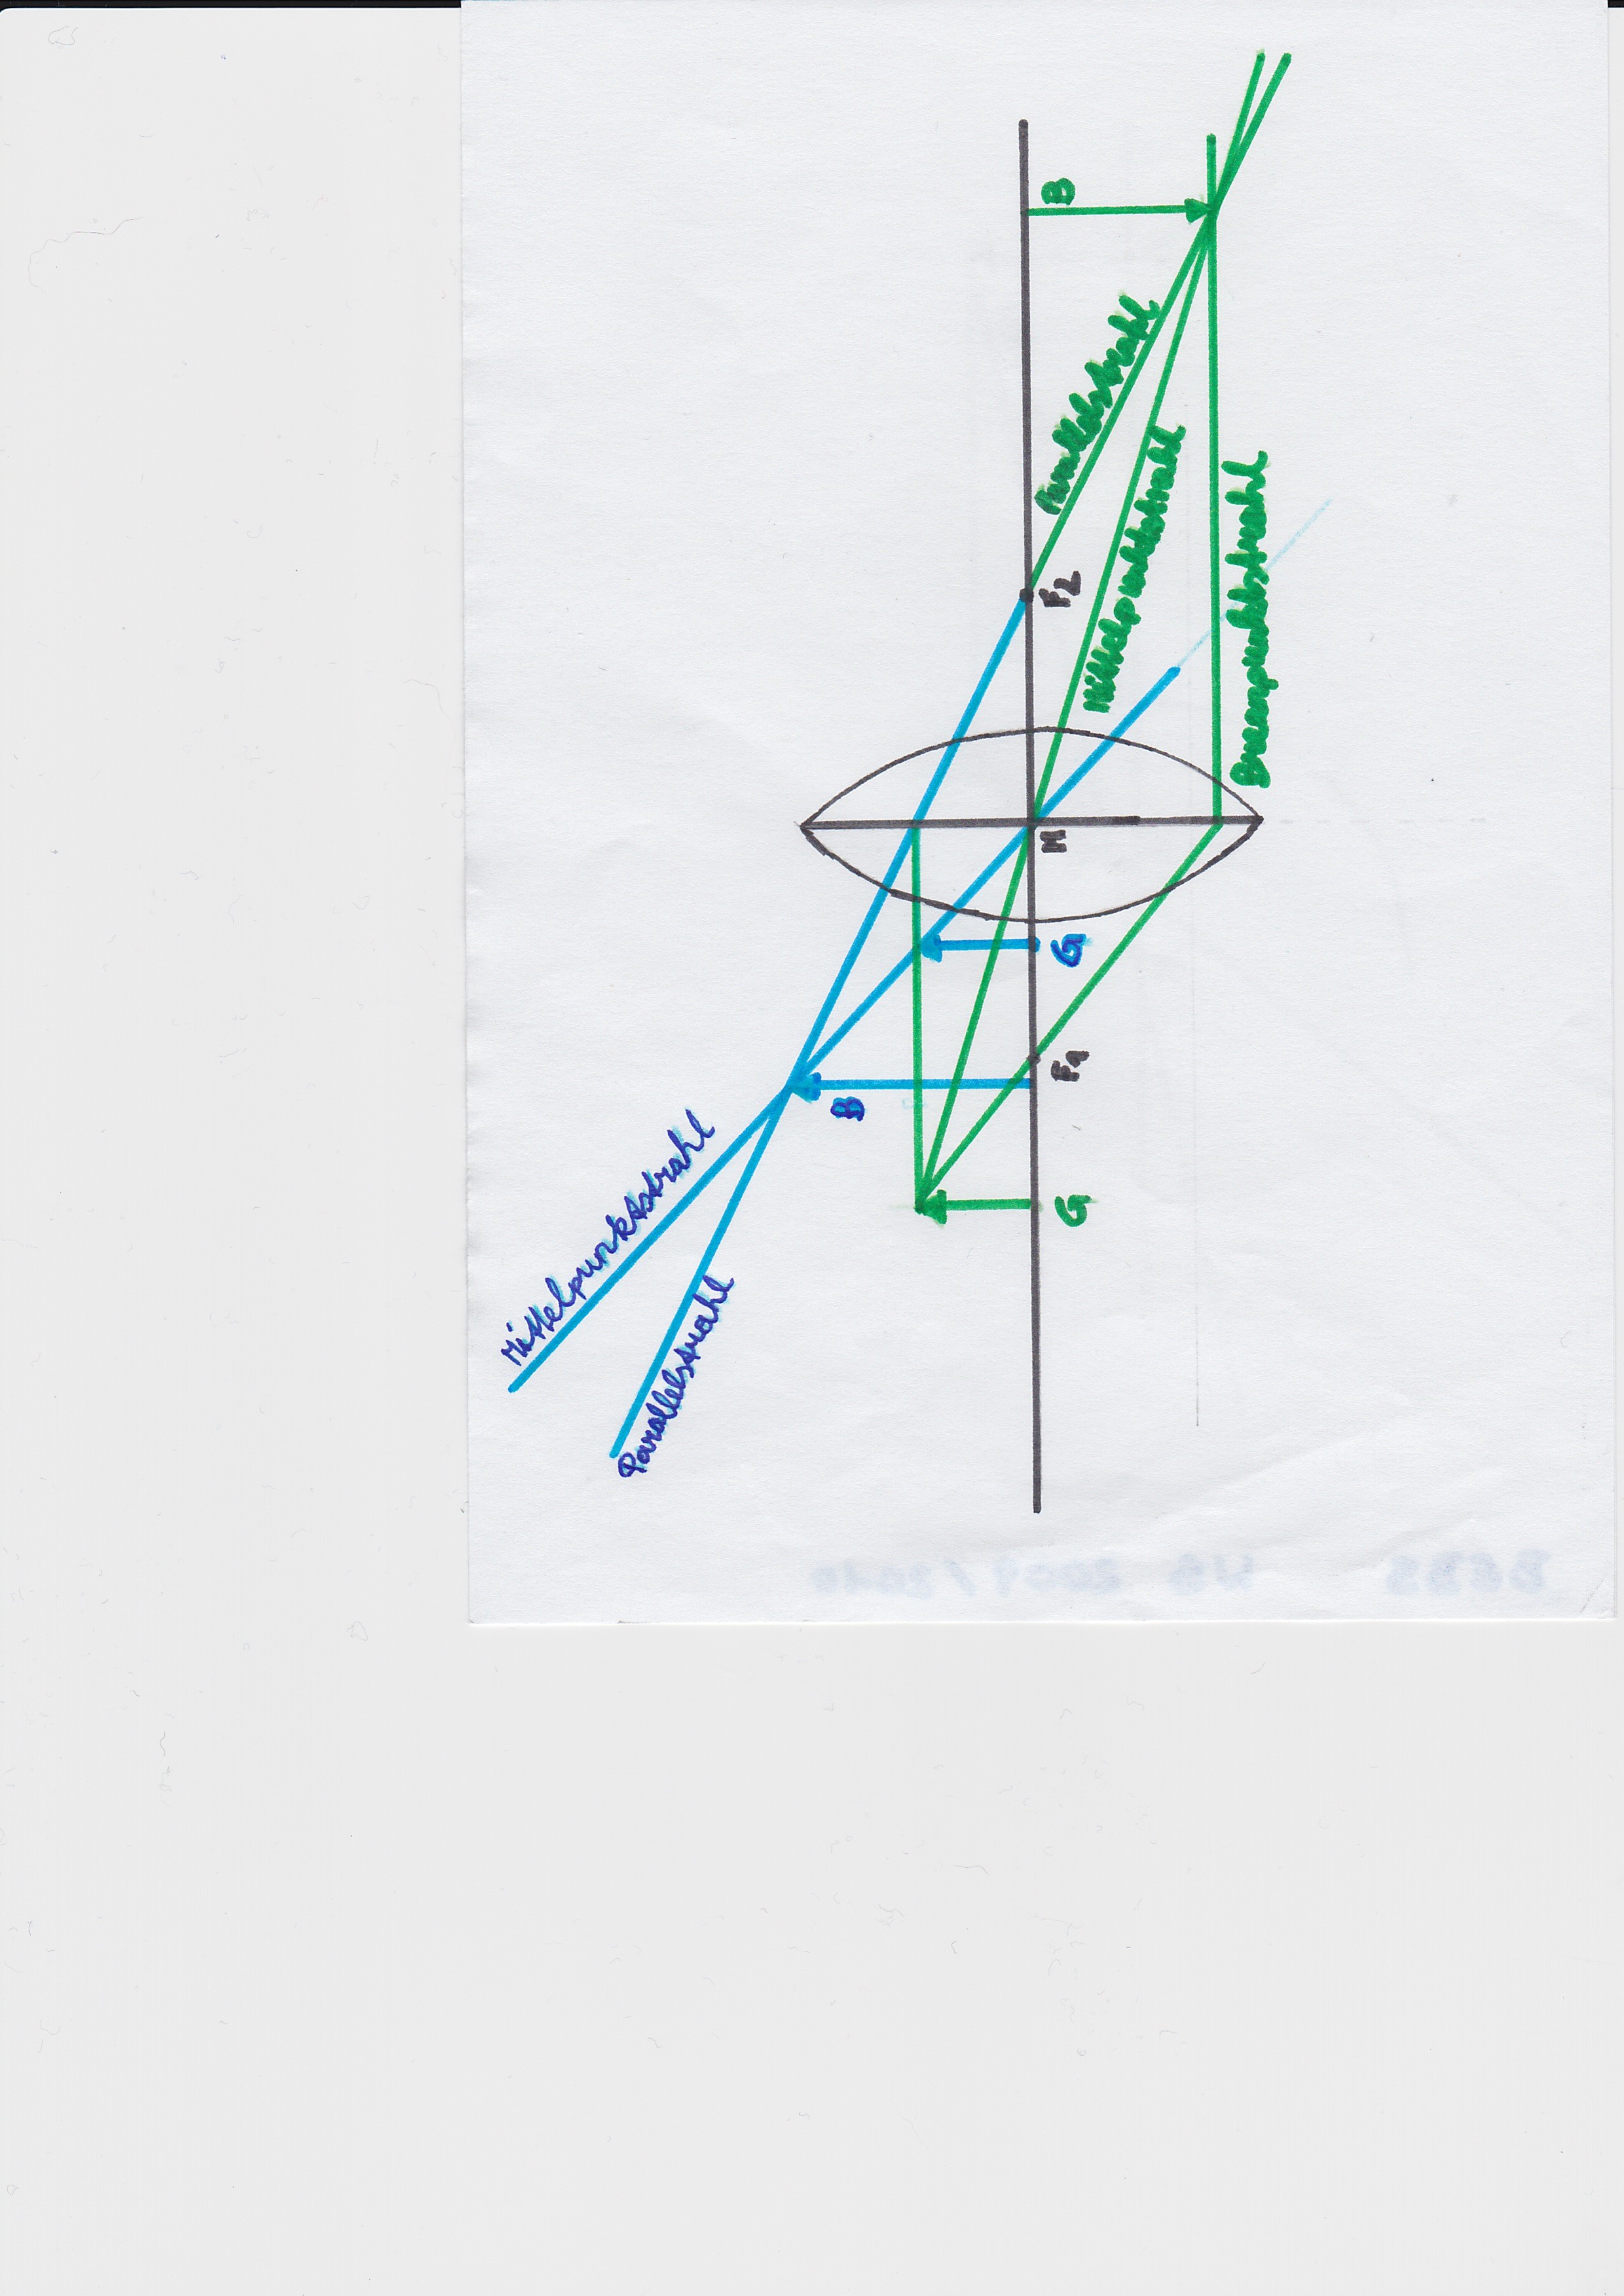 Mittelpunktsstrahl
Parallelstrahl
B
G
F1
G
M
F2
Parallelstrahl
B
Mittelpunktstrahl
Brennpunktstrahl